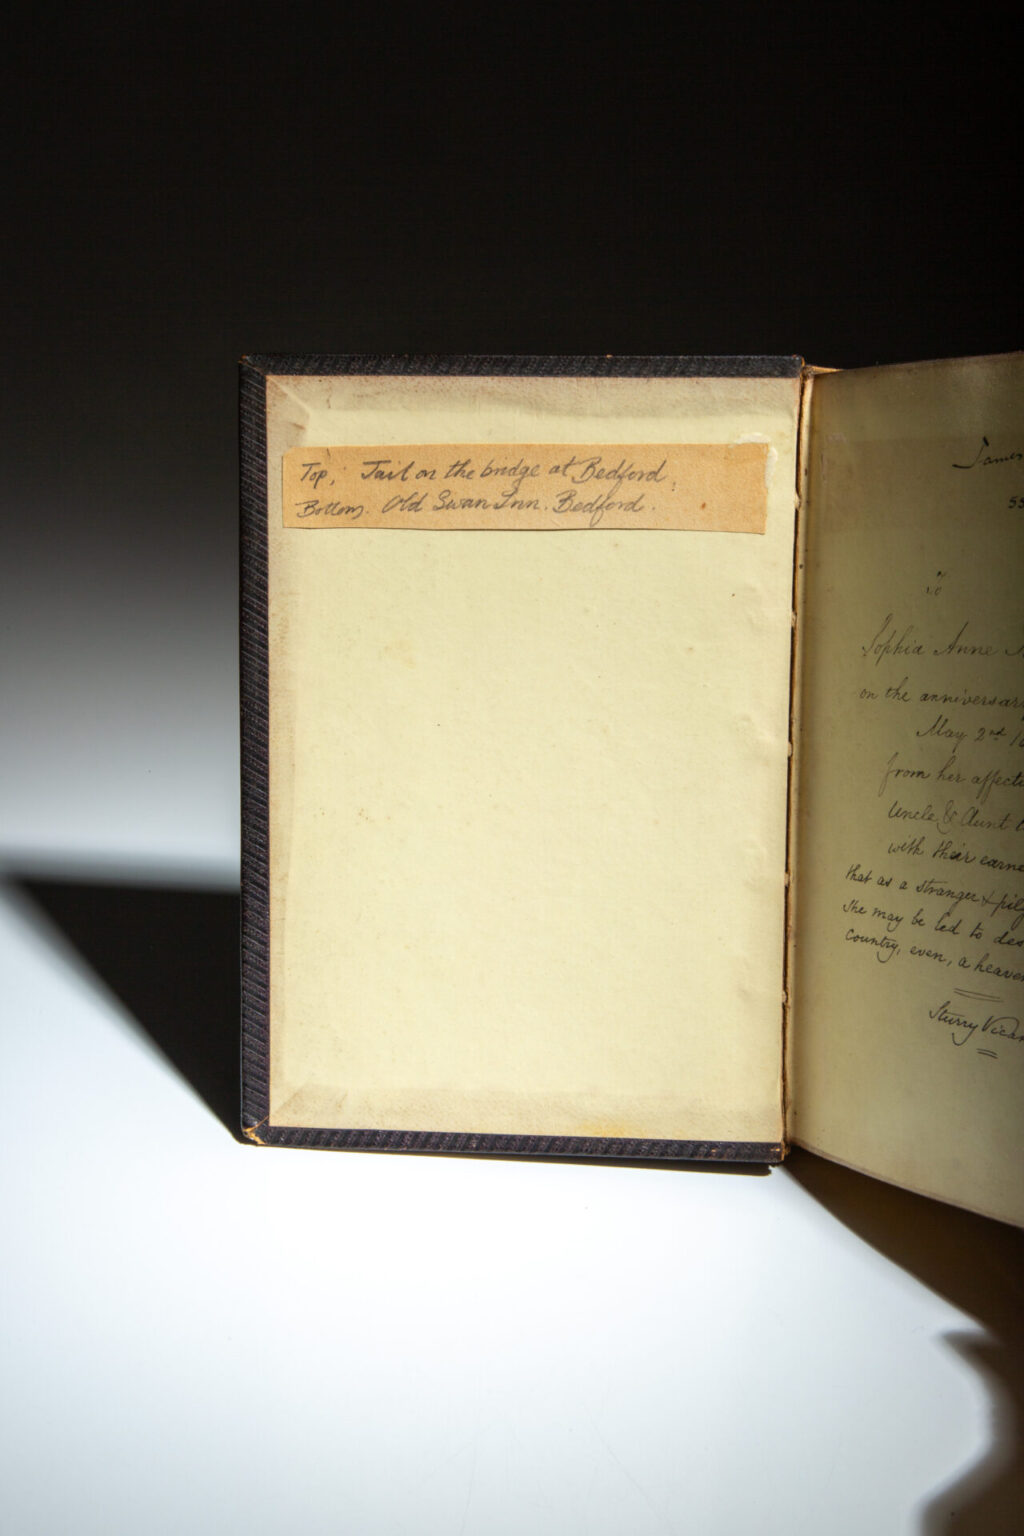 Top, Jail on the bridge at Bedford.
Bottom. Old Swan Inn. Bedford.
James
55
To
Sophia Anne
on the anniversary
May 2nd 18
from her affecti
Uncle & Aunt
with their earne
that as a stranger & pilg
she may be led to des
country, even, a heaven
Sturry Vicar